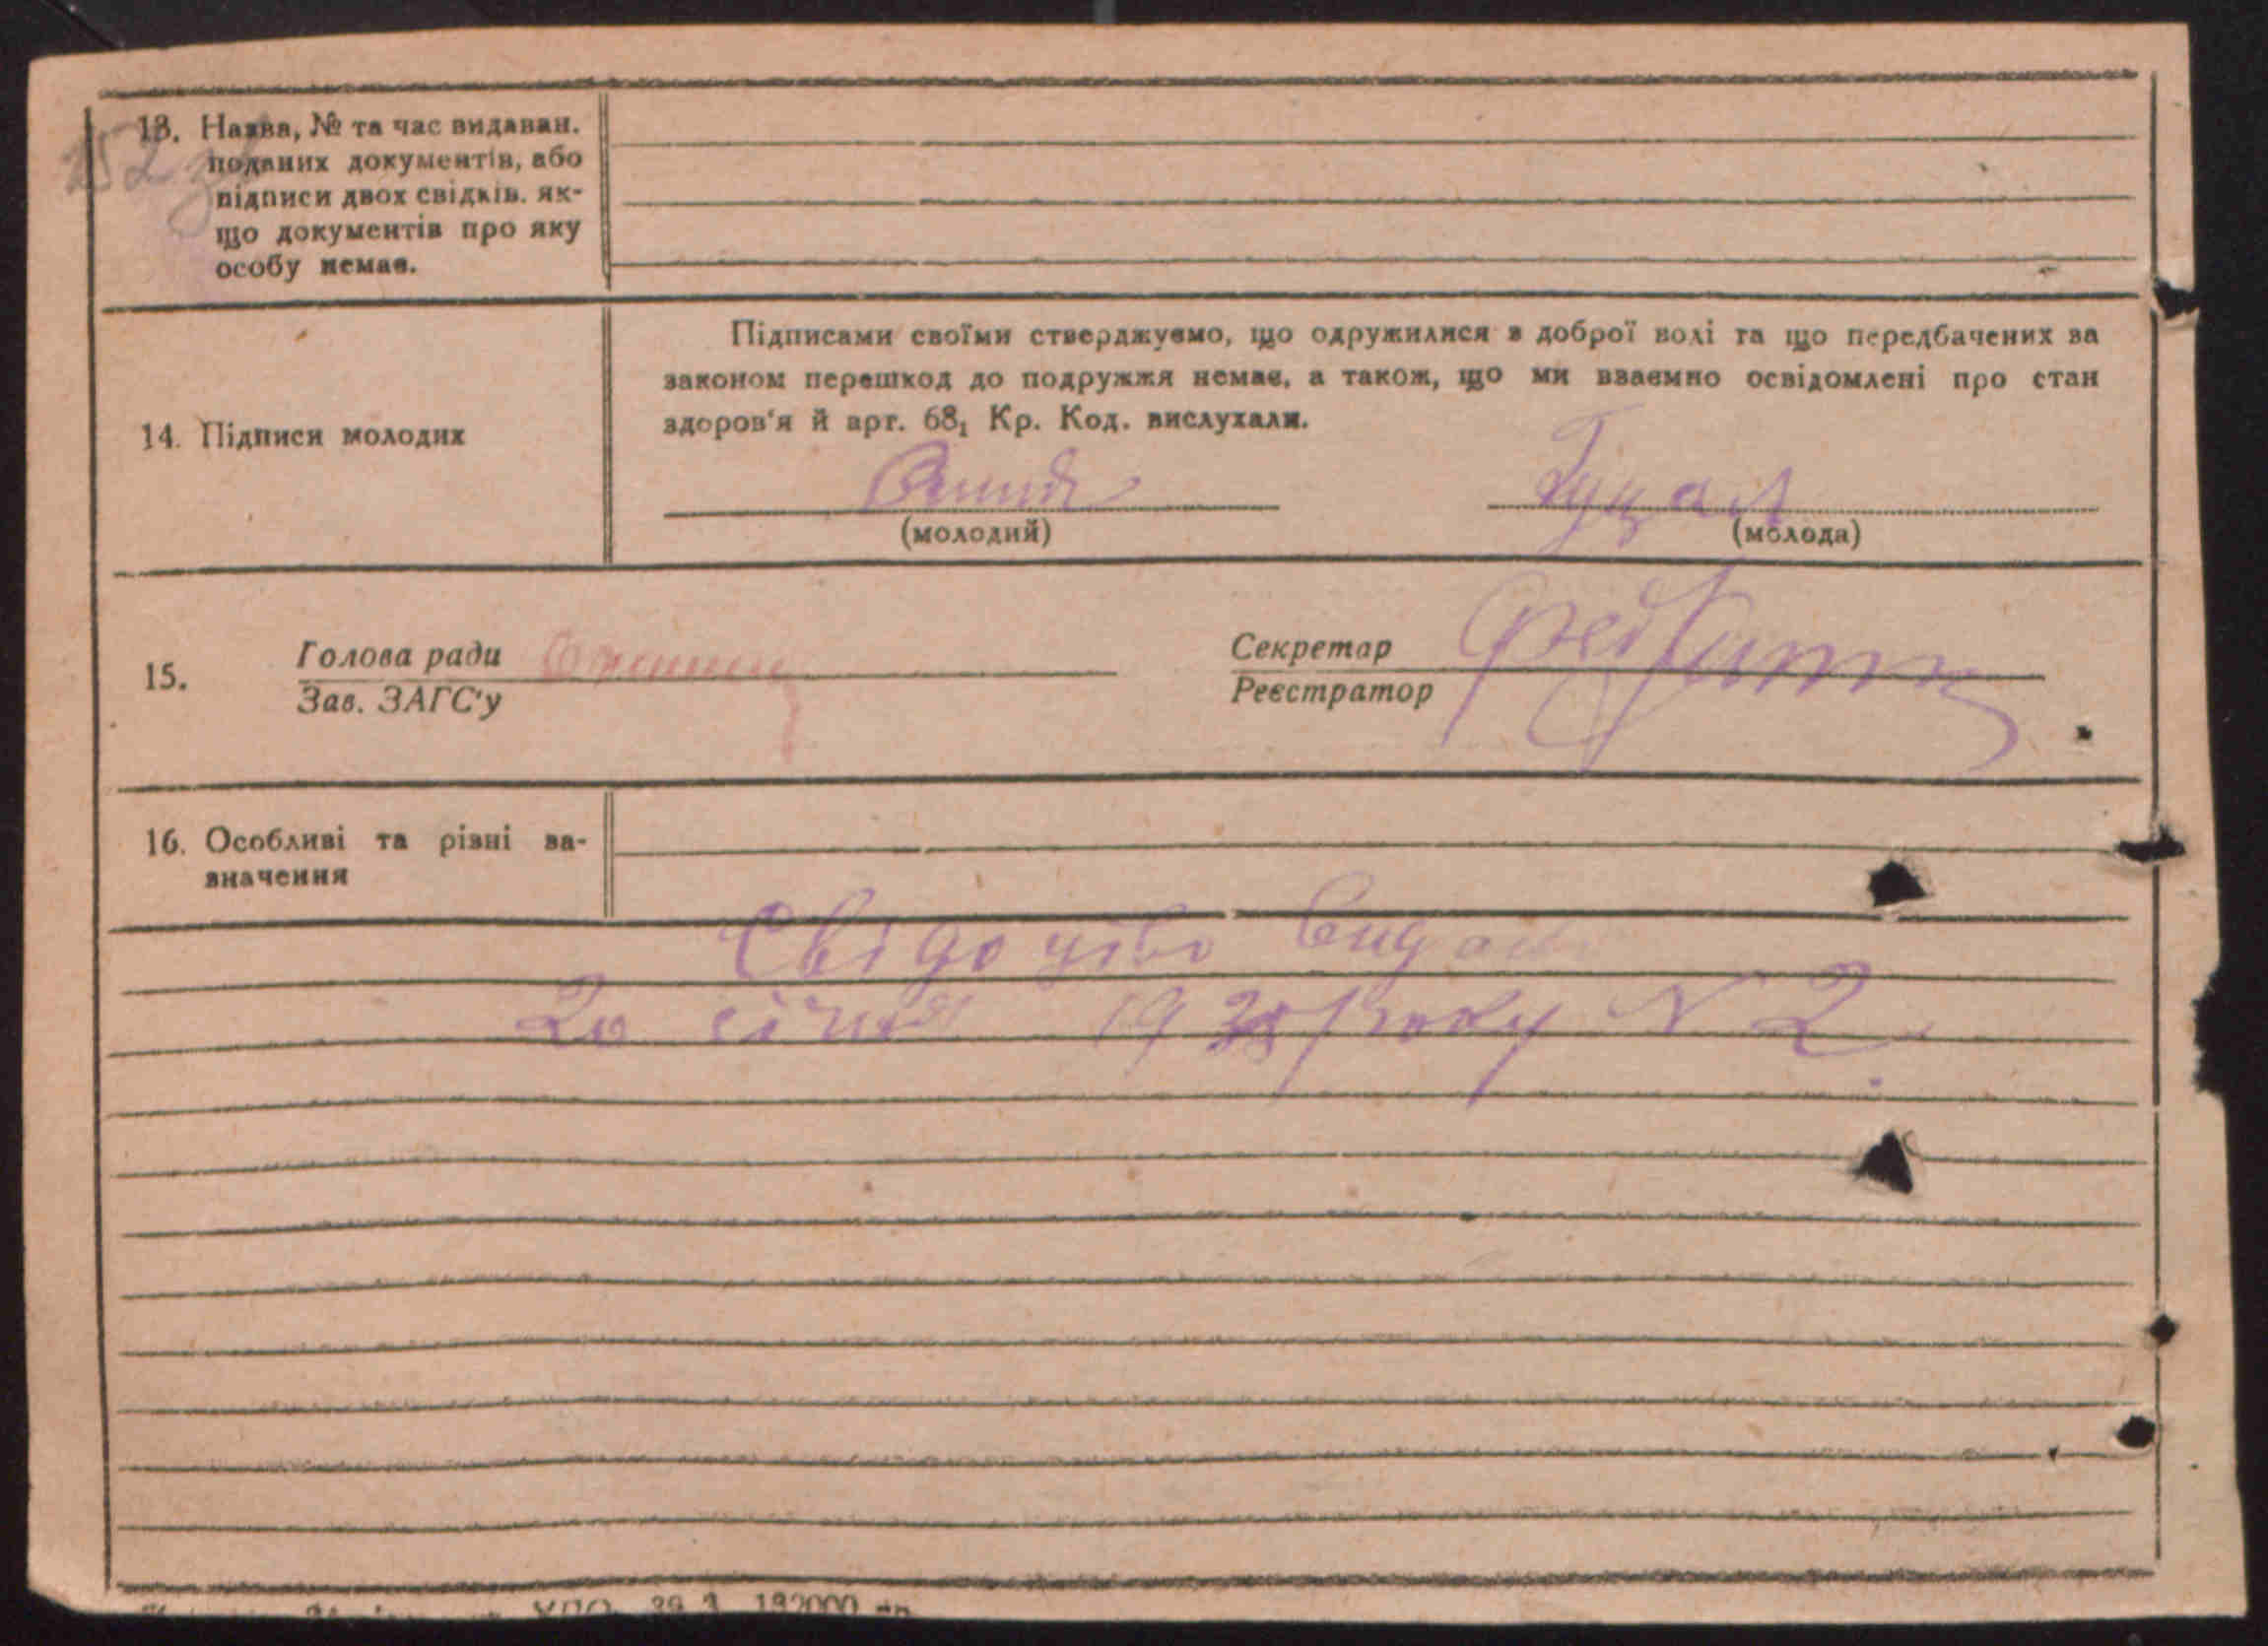 13. Назва, № та час видаван.
поданих документів, або
підписи двох свідків. як-
що документів про яку
особу немає.
152 зв
Підписами своїми стверджуємо, що одружилися з доброї волі та що передбачених за
законом перешкод до подружжя немає, а також, що ми взаємно освідомлені про стан
здоров'я й арт. 68₁ Кр. Код. вислухали.
14. Підписи молодих
Гуцал
(молодий) (молода)
15. Голова ради
Зав. ЗАГС'у
Секретар
Реєстратор
16. Особливі та різні за-
значення
Свідоцтво видано
20 січня 193 року N 2.